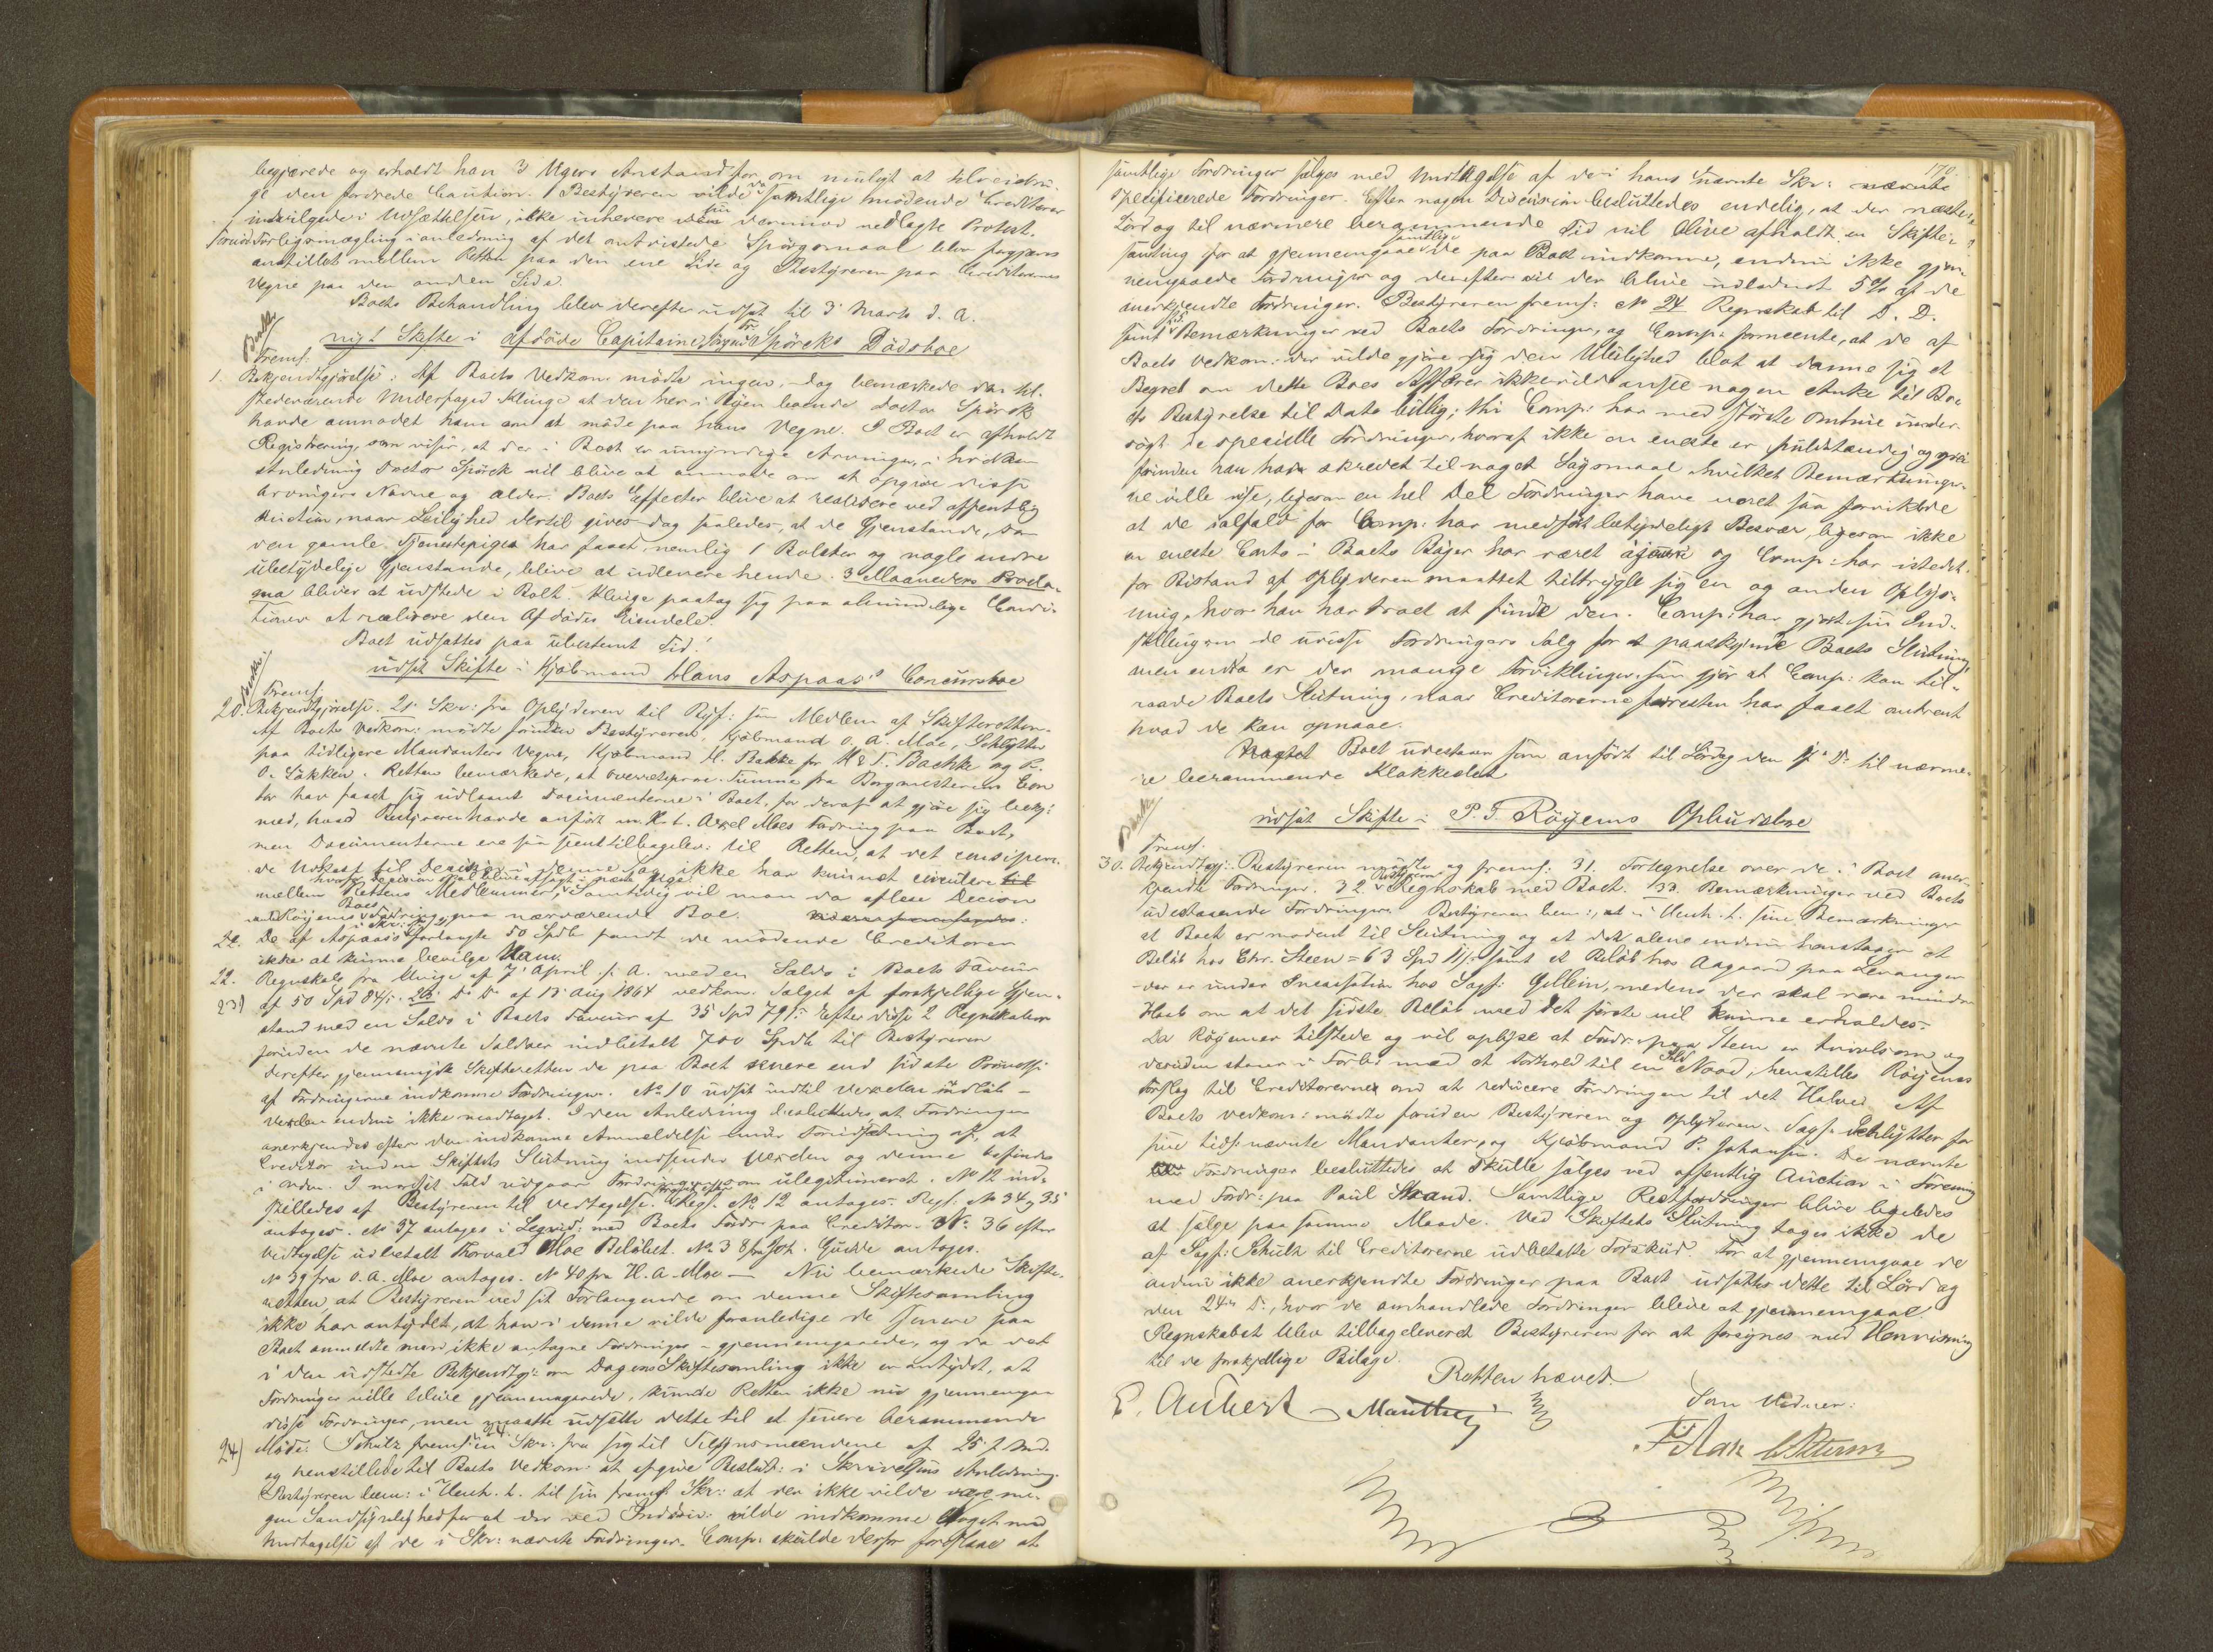 begjærede og erholdt han 3 Ugers Anstand for om muligt at tilveiebrin-
ge den fordrede Caution. Bestyreren vilde, da samtlige mødende Creditorer
indvilgede i Udsættelsen, ikke inherere sin derimod nedlagte Protest.
Forliqsmægling i anledning af det omtvistede Spörgsmaal blev forgjæves
anstillet mellem Retten paa den ene Side og Bestyreren paa Creditorernes
Vegne paa den anden Side.
Boets Behandling blev derefter udsat til 3 Marts d. A.
nyt Skifte i afdöde Capitaine Spörcks Dödsboe
Frems:
1. Bekjendtgjörelse: Af Boets Vedkom: mödte ingen, dog bemærkede den til-
stedeværende Underfoged Klinge at den her i Byen boende Doctor Spörck
havde anmodet ham om at möde paa hans Vegne. I Boet er afholdt
Registrering, som viser, at der i Boet er umyndige Arvinger, i hvilken
Anledning Doctor Spörck vil blive at anmode om at opgive disse
Arvingers Navne og Alder. Boets Effecter blive at realisere ved offentlig
Auction, naar Leilighed dertil gives dog saaledes, at de Gjenstande, som
den gamle Tjenestepige har faaet, nemlig 1 Bolster og nogle andre
ubetydelige Gjenstande, blive at udlevere hende. 3 Maaneders Procla-
ma bliver at udstede i Boet. Klinge paatog sig paa almindelige Condi-
tioner at realisere den Afdödes Eiendele.
Boet udsattes paa ubestemt Tid.
udsat Skifte i Kjöbmand Hans Aspaas's Concursboe
Frems
20. Bekjendtgjörelse. 21. Skr: fra Oplyderen til Byf: som Medlem af Skifteretten.
Af Boets Vedkom: mödte foruden Bestyreren, Kjöbmand O. A. Moe, Schlytter
paa tidligere Mandanters Vegne, Kjöbmand H. Bakke for H & T. Bachke og P.
O. Lökken. Retten bemærkede, at Overretsproc. fra Borgmesterens Con
tor har faaet sig udlaant Documenterne i Boet, for deraf at gjöre sig bekj:
med, hvad Bestyreren havde anfört m. H. t. Axel Moes Fordring paa Boet,
men Documenterne ere saa sent tilbagelev: til Retten, at det conciperede
Udkast til Decision i denne Sag ikke har kunnet circulere
mellem Rettens Medlemmer, hvorfor Decision skal blive afsagt i næste Uge. Samtidig vil man da aflese Decision
ved Röyems Boes Fordring paa nærværende Boe.
22. De af Aspaas i Skr: forlangte 50 Spdlr fandt de mödende Creditorer
ikke at kunne bevilge Ham.
22. Regnskab fra Uvige af 7' April f. A. med en Saldo i Boets Faveur
23) af 50 Spd 84/s. 23. D. D. af 13' Aug 1864 vedkom. Salget af forskjellige Gjen-
stand med en Saldo i Boets Faveur af 35 Spd 79/s. Efter disse 2 Regnskaber
foruden de nævnte Saldoer indbetalt 700 Spdlr til Bestyreren
derefter gjennemgik Skifteretten de paa Boet senere end sidste Prövelse
af Fordringerne indkomne Fordringer. No 10 udsat indtil Vexelen indlöb -
Vexelen endnu ikke modtaget. I den Anledning besluttedes at Fordringen
anerkjendes efter den indkomne Anmeldelse under Forudsætning af, at
Creditor inden Skiftets Slutning indsender Vexelen og denne befindes
i Orden. I modsat Fald udgaar Fordringen som ulegitimeret. No 12 ind-
stilledes af Bestyreren til Vedtagelse. Regs. No 12 antages. Regs. No 34 og 35
antages. No 37 antages i Liqvid: med Boets Fordr paa Creditor. No. 36 efter
Vedtagelse udbetalt Thorvald Moe Belöbet. No 38 fra Joh. Gudde antages.
No 39 fra O. A. Moe antages. No 40 fra H. A. Moe — Nu bemærkede Skifte-
retten, at Bestyreren ved sit Forlangende om denne Skiftesamling
ikke har antydet, at han i denne vilde foranledige de senere paa
Boet anmeldte men ikke antagne Fordringer - gjennemgaaede, og da det
i den udstedte Bekjendtgj: om Dagens Skiftesamling ikke er antydet, at
Fordringer ville blive gjennemgaaede, kunde Retten ikke nu gjennemgaa
disse Fordringer, men maatte udsætte dette til et senere berammende
24) Möde. Schulz frems: 24 en Skr: fra sig til Tilsynsmændene af 25' f. Md.
og henstillede til Boets Vedkom: at afgive Beslut: i Skrivelsens Anledning.
Bestyreren bem: i Henh. t. til sin frems: Skr: at der ikke vilde være no-
gen Sandsynlighed for at der ved Inddriv: vilde indkomme Noget med
Undtagelse af de i Skr: nævnte Fordringer. Comp: skulde derfor foreslaae at
170.
samtlige Fordringer sælges med Undtagelse af de i hans nævnte Skr: nævnte
specificerede Fordringer. Efter nogen Discussion besluttedes endelig, at der næste
Lördag til nærmere berammende Tid vil blive afholdt en Skifte-
samling for at gjennemgaae samtlige de paa Boet indkomne, endnu ikke gjen-
nemgaaede Fordringer og derefter vil der blive udlodnet 5% af de
anerkjendte Fordringer. Bestyreren frems: No 24 Regnskab til D. D.
samt 25 Bemærkninger ved Boets Fordringer, og Comp: formeente, at de af
Boets Vedkom. der vilde gjöre sig den Uleilighed blot at danne sig et
Begreb om dette Boes Affærer ikke vilde ansee nogen Anke til Bo-
ets Bestyrelse til Dato billig; thi Comp: har med störste Omhue under-
sögt de specielle Fordringer, hvoraf ikke en eneste er fuldstændig og
forinden han har skredet til noget Sögsmaal hvilket Bemærkninger-
ne ville vise, ligesom en hel Del Fordringer have været saa forviklede
at de ialfald for Comp: har medfört betydeligt Besvær, ligesom ikke
en eneste Conto i Boets Böger har været ájour og Comp: har istedet-
for Bistand af Oplyderen maattet tiltrygle sig en og anden Oplys-
ning, hvor han har troet at finde den. Comp: har gjort sin Ind-
stilling om de uvisse Fordringers Salg for at paaskynde Boets Slutning,
men endda er der mange Forviklinger, som gjör at Comp: kan til-
raade Boets Slutning, naar Creditorerne forresten har faaet omtrent
hvad de kan opnaae.
Boet udestaar som anfört til Lördag den D. til nærme-
re berammende Klokkeslet
udsat Skifte i P. T. Röyems Opbudsboe
Frems.
30. Bekjendtgj: Bestyreren mödte og frems: 31. Fortegnelse over de i Boet aner-
kjendte Fordringer. 32. Bestyrerens Regnskab med Boet. 33. Bemærkninger ved Boets
udestaaende Fordringer. Bestyreren bem:, at i Henh. t. sine Bemærkninger
at Boet er modent til Slutning og at det alene endnu henstaar et
Belöb hos Chr. Steen = 63 Spd 11/s. samt et Belöb hos Aagaard paa Levanger
der er under Incassation hos Sagf: Gellein, medens der skal være mindre
Haab om at det sidste Belöb med det förste vil kunne erholdes.
Da Röyem er tilstede og vil oplyse at Fordr. paa Steen er tvivlsom og
desuden staar i Forb: med et Forhold til en Sild Naad, henstilles Röyems
Forslag til Creditorerne om at reducere Fordringen til det Halve. Af
Boets Vedkom: mödte foruden Bestyreren og Oplyderen. Sagf. Schlytter for
sine tidl: nævnte Mandanter, og Kjöbmand P. Johansen. De nævnte
Fordringer besluttedes at skulle sælges ved offentlig Auction i Forening
med Fordr: paa Poul Strand. Samtlige Restfordringer blive ligeledes
at sælge paa samme Maade. Ved Skiftets Slutning tages ikke de
af Sagf: Schulz til Creditorerne udbetalte Forskud. For at gjennemgaae de
endnu ikke anerkjendte Fordringer paa Boet udsattes dette til Lördag
den 24de D., hvor de omhandlede Fordringer blive at gjennemgaae.
Regnskabet blev tilbageleveret Bestyreren for at forsynes med Henvisning
til de forskjellige Bilage.
Retten hævet.
E. Aubert Manthey
Som Vidner: